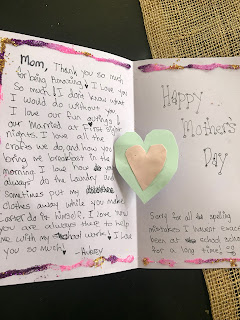 Mom, Thank you so much
for being Amazing! I love you
So much! I don't know what
I would do without you
I love our fun outings &
our Married at First Sight
nights, I love all the
crafts we do, and how you
bring me breakfast in the
morning. I love how you
always do the laundry and
Sometimes put my
clothes away while you make
Carter do it himself. I love how
you are always there to help
me with my school work! I Love
you so much!
Happy
Mother's
Day
Sorry for all spelling
mistakes I haven't exactly
been at school
for a long time!